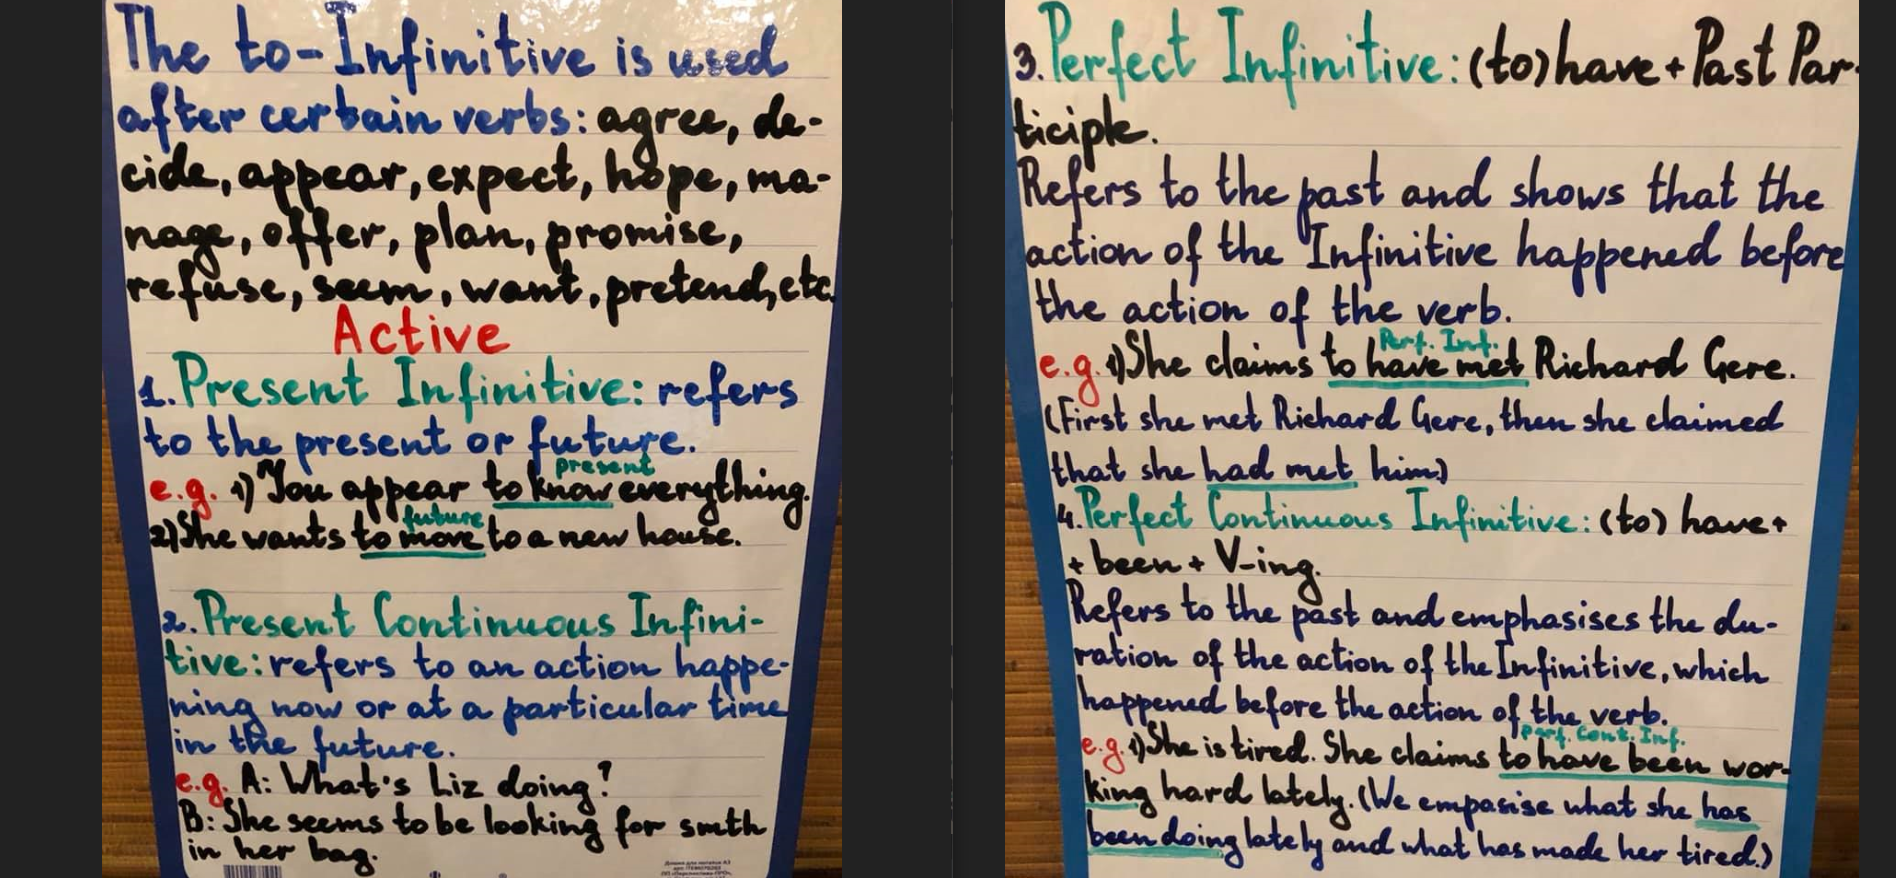 The to-Infinitive is used
after certain verbs: agree, de-
cide, appear, expect, hope, ma-
nage, offer, plan, promise,
refuse, seem, want, pretend, etc.
Active
1. Present Infinitive: refers
to the present or future.
present
e.g. 1) You appear to know everything.
future
2) She wants to move to a new house.
2. Present Continuous Infini-
tive: refers to an action happe-
ning now or at a particular time
in the future.
e.g. A: What's Liz doing?
B: She seems to be looking for smth
in her bag.
3. Perfect Infinitive: (to) have + Past Par-
ticiple.
Refers to the past and shows that the
action of the Infinitive happened before
the action of the verb.
Perf. Inf.
e.g. 1) She claims to have met Richard Gere.
(First she met Richard Gere, then she claimed
that she had met him.)
4. Perfect Continuous Infinitive: (to) have +
+ been + V-ing.
Refers to the past and emphasises the du-
ration of the action of the Infinitive, which
happened before the action of the verb.
Perf. Cont. Inf.
e.g. 1) She is tired. She claims to have been wor-
king hard lately. (We empasise what she has
been doing lately and what has made her tired.)